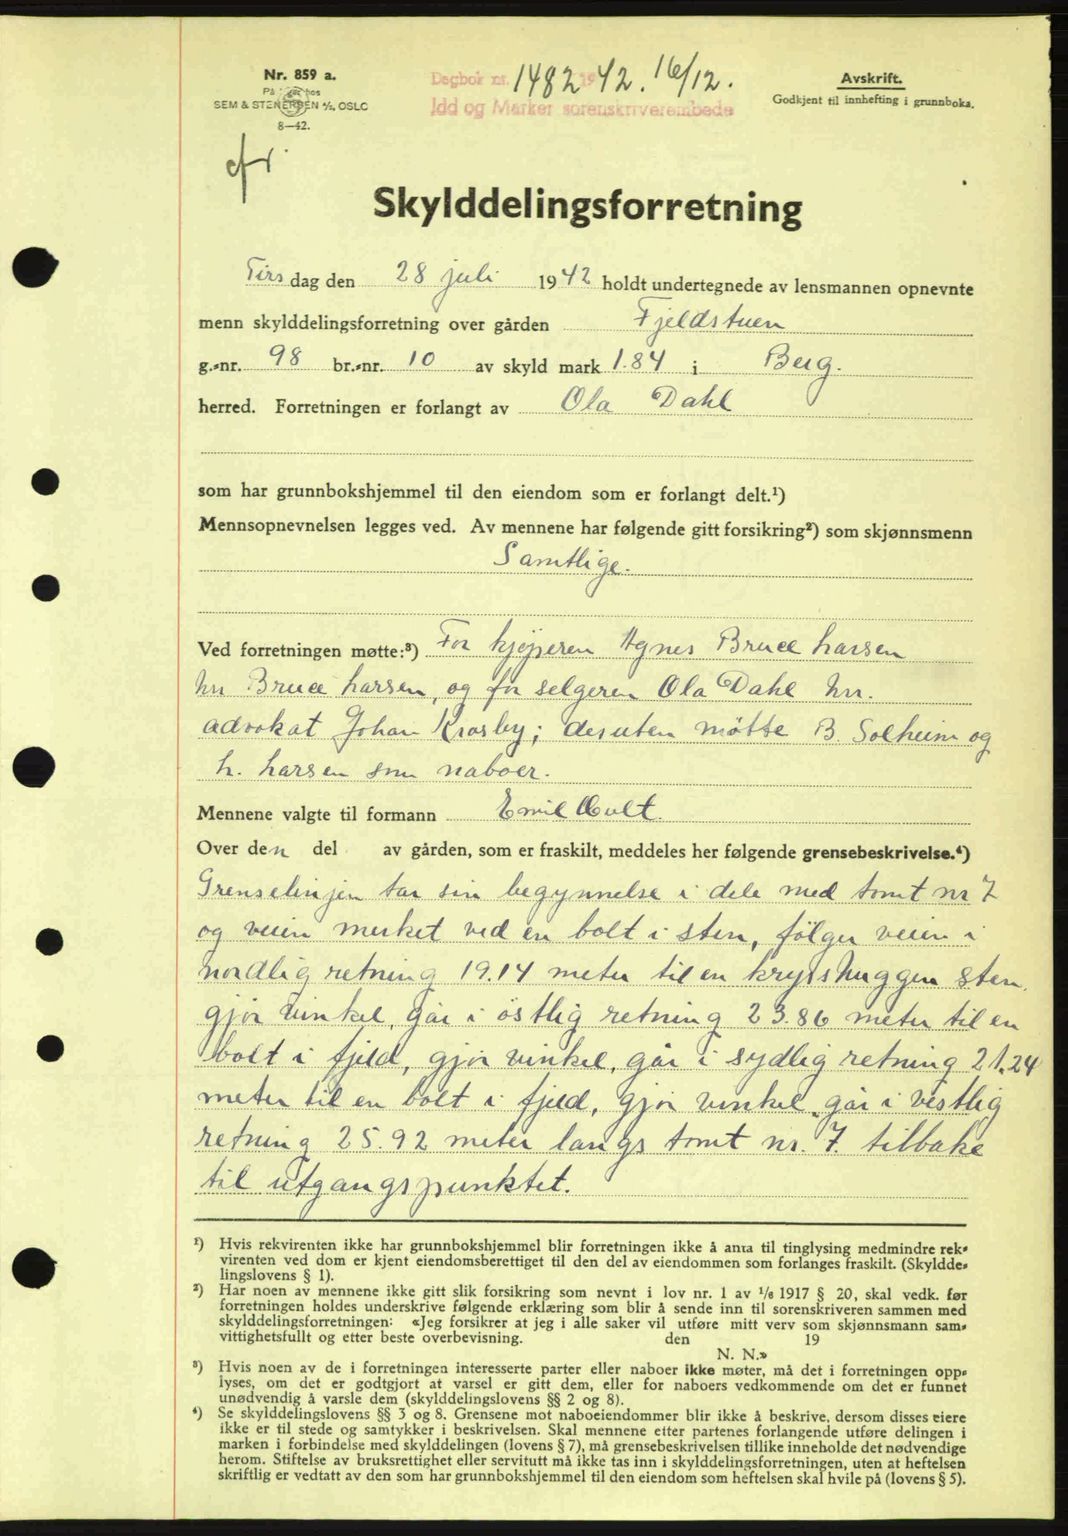 Nr. 859 a.
På lager hos
SEM & STENERSEN A/S, OSLO
8—42.
Dagbok nr. 1482 1942. 16/12.
Idd og Marker sorenskriverembede
Avskrift.
Godkjent til innhefting i grunnboka.
cfr.
Skylddelingsforretning
Tirsdag den 28 juli 1942 holdt undertegnede av lensmannen opnevnte
menn skylddelingsforretning over gården Fjeldstuen
g.-nr. 98 br.-nr. 10 av skyld mark 1.84 i Berg.
herred. Forretningen er forlangt av Ola Dahl
som har grunnbokshjemmel til den eiendom som er forlangt delt.¹)
Mennsopnevnelsen legges ved. Av mennene har følgende gitt forsikring²) som skjønnsmenn
Samtlige.
Ved forretningen møtte:³) For kjøperen Agnes Bruce Larsen
hr. Bruce Larsen, og for selgeren Ola Dahl hr.
advokat Johan Krosby; desuten møtte B. Solheim og
H. Larsen som naboer.
Mennene valgte til formann Emil Hult.
Over den del av gården, som er fraskilt, meddeles her følgende grensebeskrivelse.⁴)
Grenselinjen tar sin begynnelse i dele med tomt nr 7
og veien merket ved en bolt i sten, følger veien i
nordlig retning 19.14 meter til en krysshuggen sten.
gjør vinkel, går i østlig retning 23.86 meter til en
bolt i fjeld, gjør vinkel, går i sydlig retning 21.24
meter til en bolt i fjeld, gjør vinkel, går i vestlig
retning 25.92 meter langs tomt nr. 7. tilbake
til utgangspunktet.
¹) Hvis rekvirenten ikke har grunnbokshjemmel blir forretningen ikke å anta til tinglysing medmindre rek-
virenten ved dom er kjent eiendomsberettiget til den del av eiendommen som forlanges fraskilt. (Skyldde-
lingslovens § 1).
²) Har noen av mennene ikke gitt slik forsikring som nevnt i lov nr. 1 av 1/6 1917 § 20, skal vedk. før
forretningen holdes underskrive følgende erklæring som blir å sende inn til sorenskriveren sammen med
skylddelingsforretningen: «Jeg forsikrer at jeg i alle saker vil utføre mitt verv som skjønnsmann sam-
vittighetsfullt og etter beste overbevisning. den 19
N. N.»
³) Hvis noen av de i forretningen interesserte parter eller naboer ikke møter, må det i forretningen opp-
lyses, om det er godtgjort at varsel er gitt dem, eller for naboers vedkommende om det er funnet
unødvendig å varsle dem (skylddelingslovens §§ 2 og 8).
⁴) Se skylddelingslovens §§ 3 og 8. Grensene mot naboeiendommer blir ikke å beskrive, dersom disses eiere
ikke er til stede og samtykker i beskrivelsen. Skal mennene etter partenes forlangende utføre delingen i
marken i forbindelse med skylddelingen (lovens § 7), må grensebeskrivelsen tillike inneholde det nødvendige
herom. Stiftelse av bruksrettighet eller servitutt må ikke tas inn i skylddelingsforretningen, uten at heftelsen
skriftlig er vedtatt av den som har grunnbokshjemmel til den eiendom som heftelsen skal hvile på (lovens § 5).